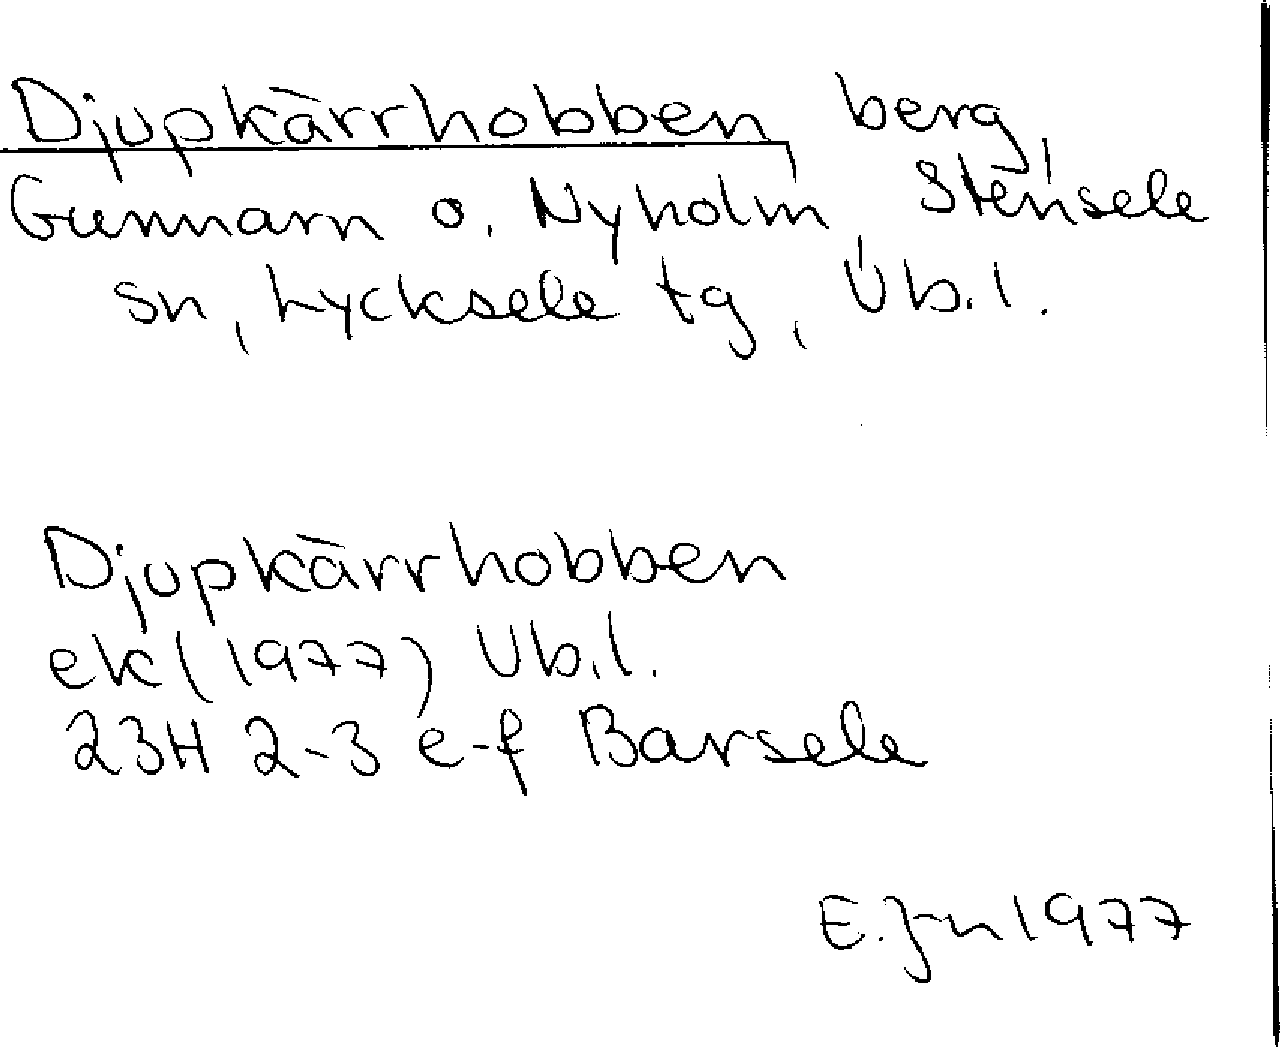 Djupkärrhobben, berg,
Gunnarn o. Nyholm, Stensele
sn, Lycksele tg, Vb.l.
Djupkärrhobben
ek (1977) Vb.l.
23H 2-3 e-f Barsele
E. J-n 1977